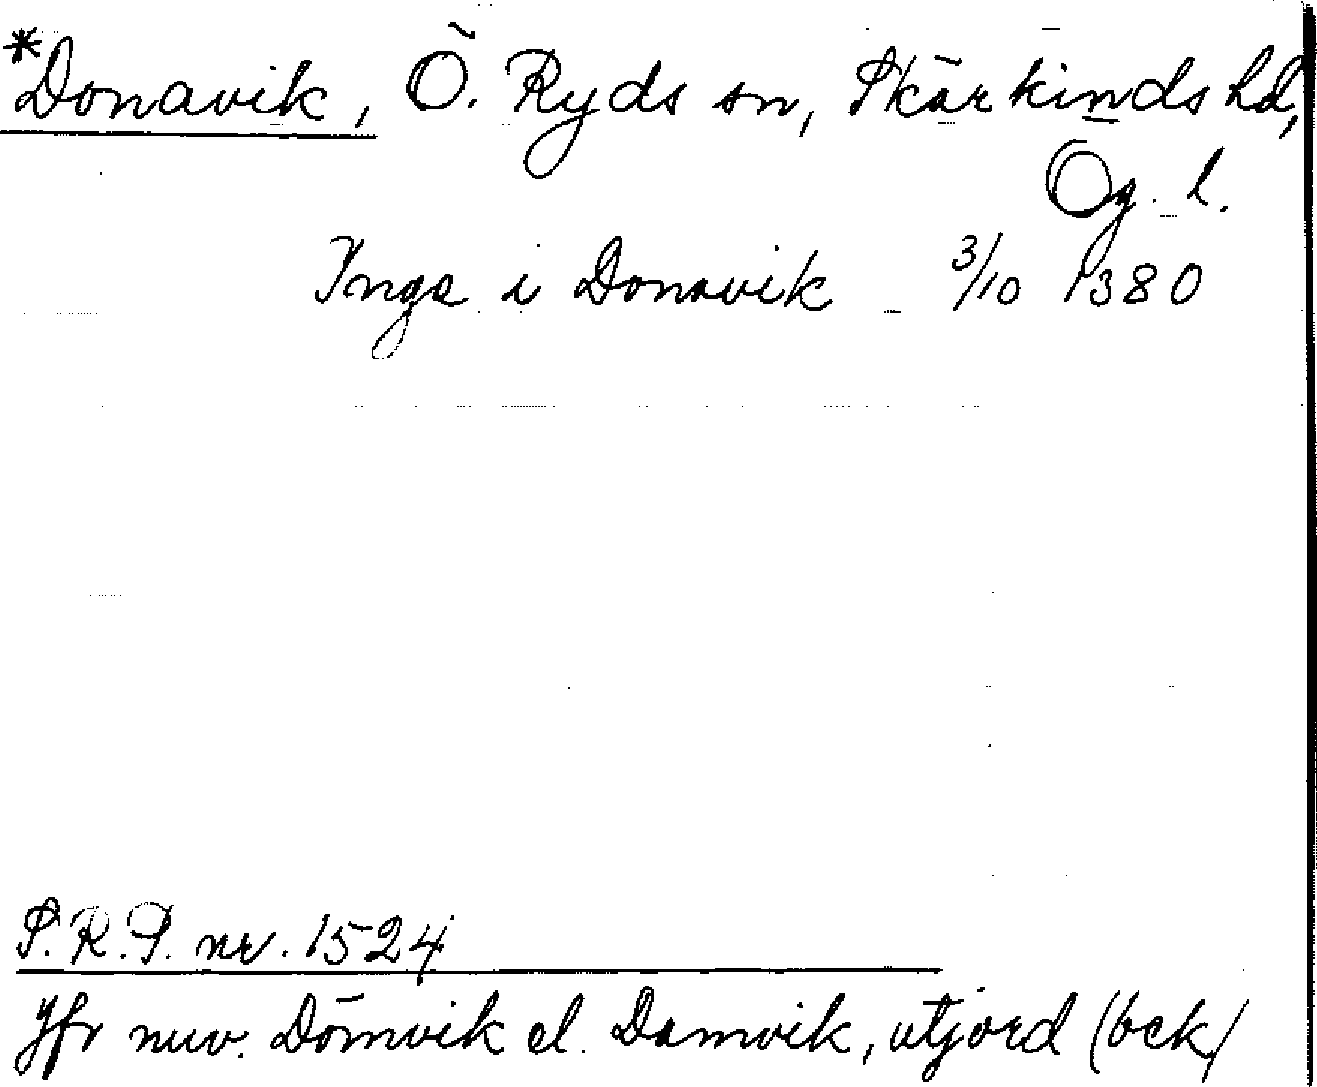 *Donavik, Ö. Ryds sn, Skärkinds hd,
Ög. l.
Inga i Donavik 3/10 1380
S.R.P. nr. 1524
Jfr nuv. Dömvik el. Damvik, utjord (bek)